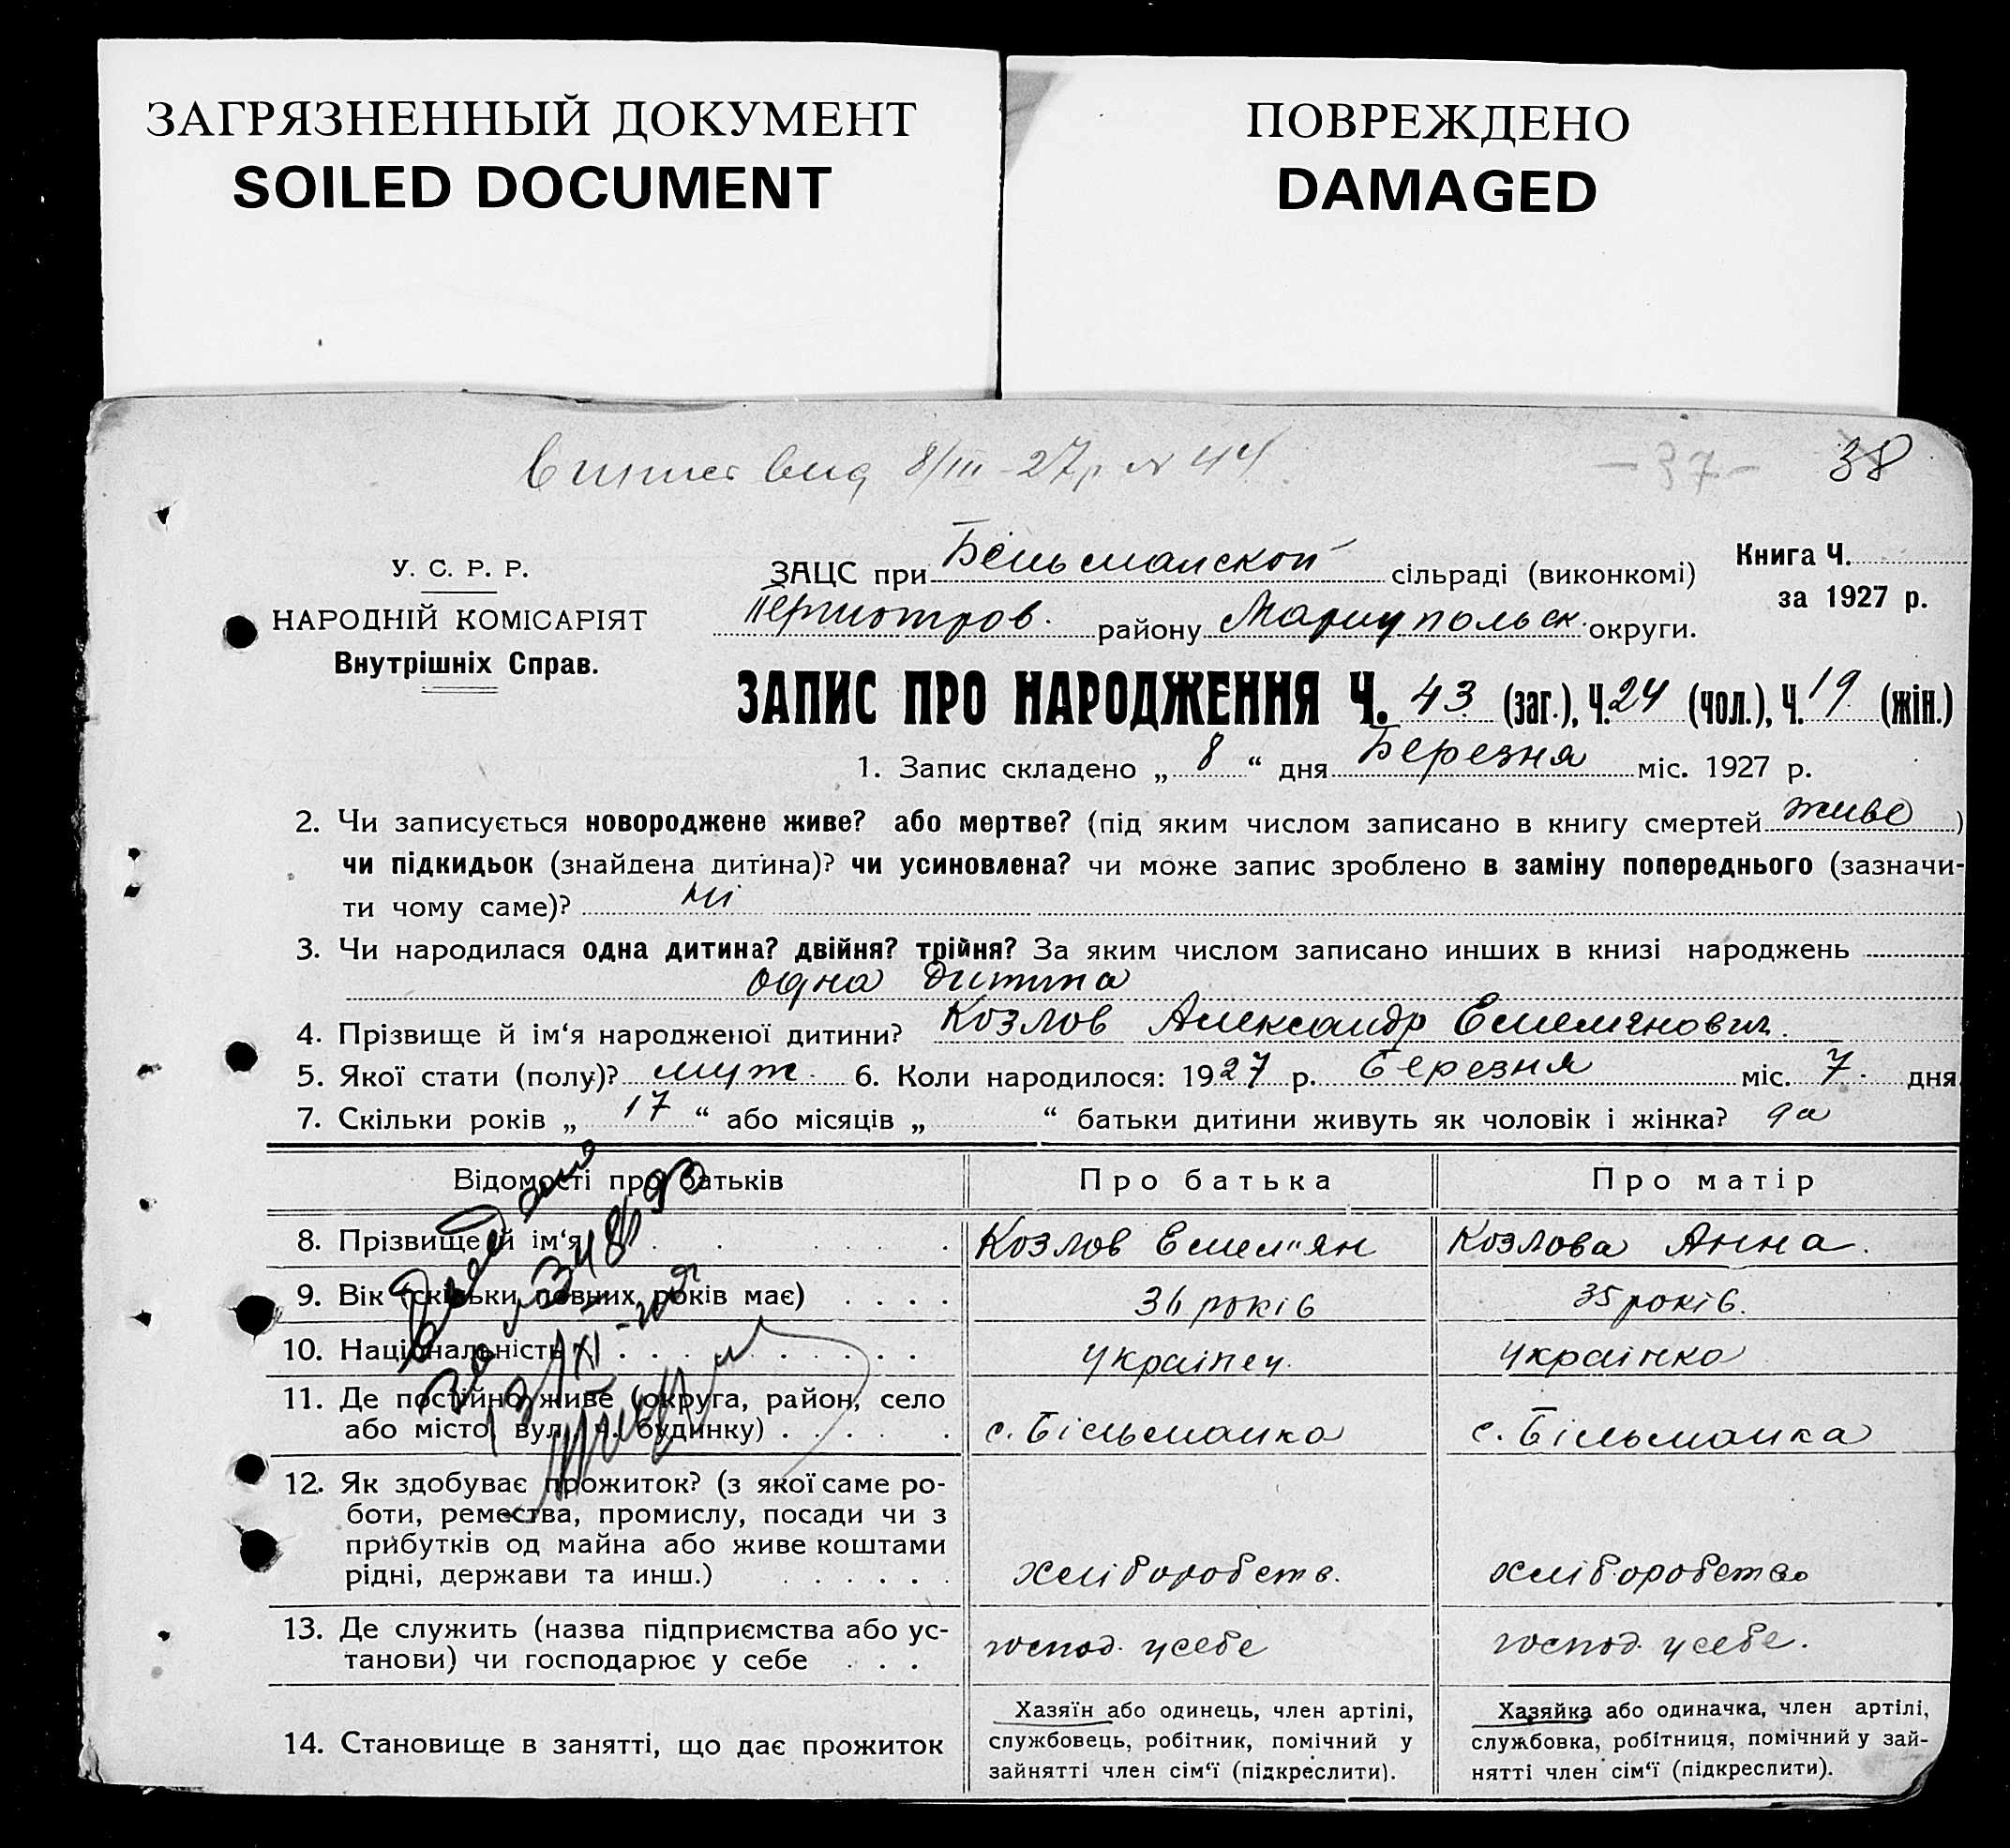 ЗАГРЯЗНЕННЫЙ ДОКУМЕНТ
SOILED DOCUMENT
ПОВРЕЖДЕНО
DAMAGED
8/III-27р N 44
-37- 38
У. С. Р. Р.
НАРОДНІЙ КОМІСАРІЯТ
Внутрішніх Справ.
ЗАЦС при Бельманской сільраді (виконкомі)
Книга Ч.
за 1927 р.
району Мариупольск. округи.
ЗАПИС ПРО НАРОДЖЕННЯ Ч. 43 (заг.), Ч. 24 (чол.), Ч. 19 (жін.)
1. Запис складено „ 8 “ дня Березня міс. 1927 р.
2. Чи записується новороджене живе? або мертве? (під яким числом записано в книгу смертей живе )
чи підкидьок (знайдена дитина)? чи усиновлена? чи може запис зроблено в заміну попереднього (зазначи-
ти чому саме)? ні
3. Чи народилася одна дитина? двійня? трійня? За яким числом записано инших в книзі народжень
одна дитина
4. Прізвище й ім‘я народженої дитини? Козлов Александр Емелянович.
5. Якої стати (полу)? муж. 6. Коли народилося: 1927 р. березня міс. 7. дня
7. Скільки років „ 17 “ або місяців „ “ батьки дитини живуть як чоловік і жінка? да
Відомості про батьків Про батька Про матір
8. Прізвище й ім‘я Козлов Емел"ян Козлова Анна.
9. Вік (скільки повних років має) 36 років 35 років.
10. Національність українец. українка
11. Де постійно живе (округа, район, село
або місто, вул., ч. будинку) с. Більманка с. Більманка
12. Як здобуває прожиток? (з якої саме ро-
боти, ремества, промислу, посади чи з
прибутків од майна або живе коштами
рідні, держави та инш.) хліборобств. хліборобство
13. Де служить (назва підприємства або ус-
танови) чи господарює у себе господ. у себе господ. у себе.
14. Становище в занятті, що дає прожиток
Хазяїн або одинець, член артілі,
службовець, робітник, помічний у
зайнятті член сім‘ї (підкреслити).
Хазяйка або одиначка, член артілі,
службовка, робітниця, помічний у зай-
нятті член сім‘ї (підкреслити).